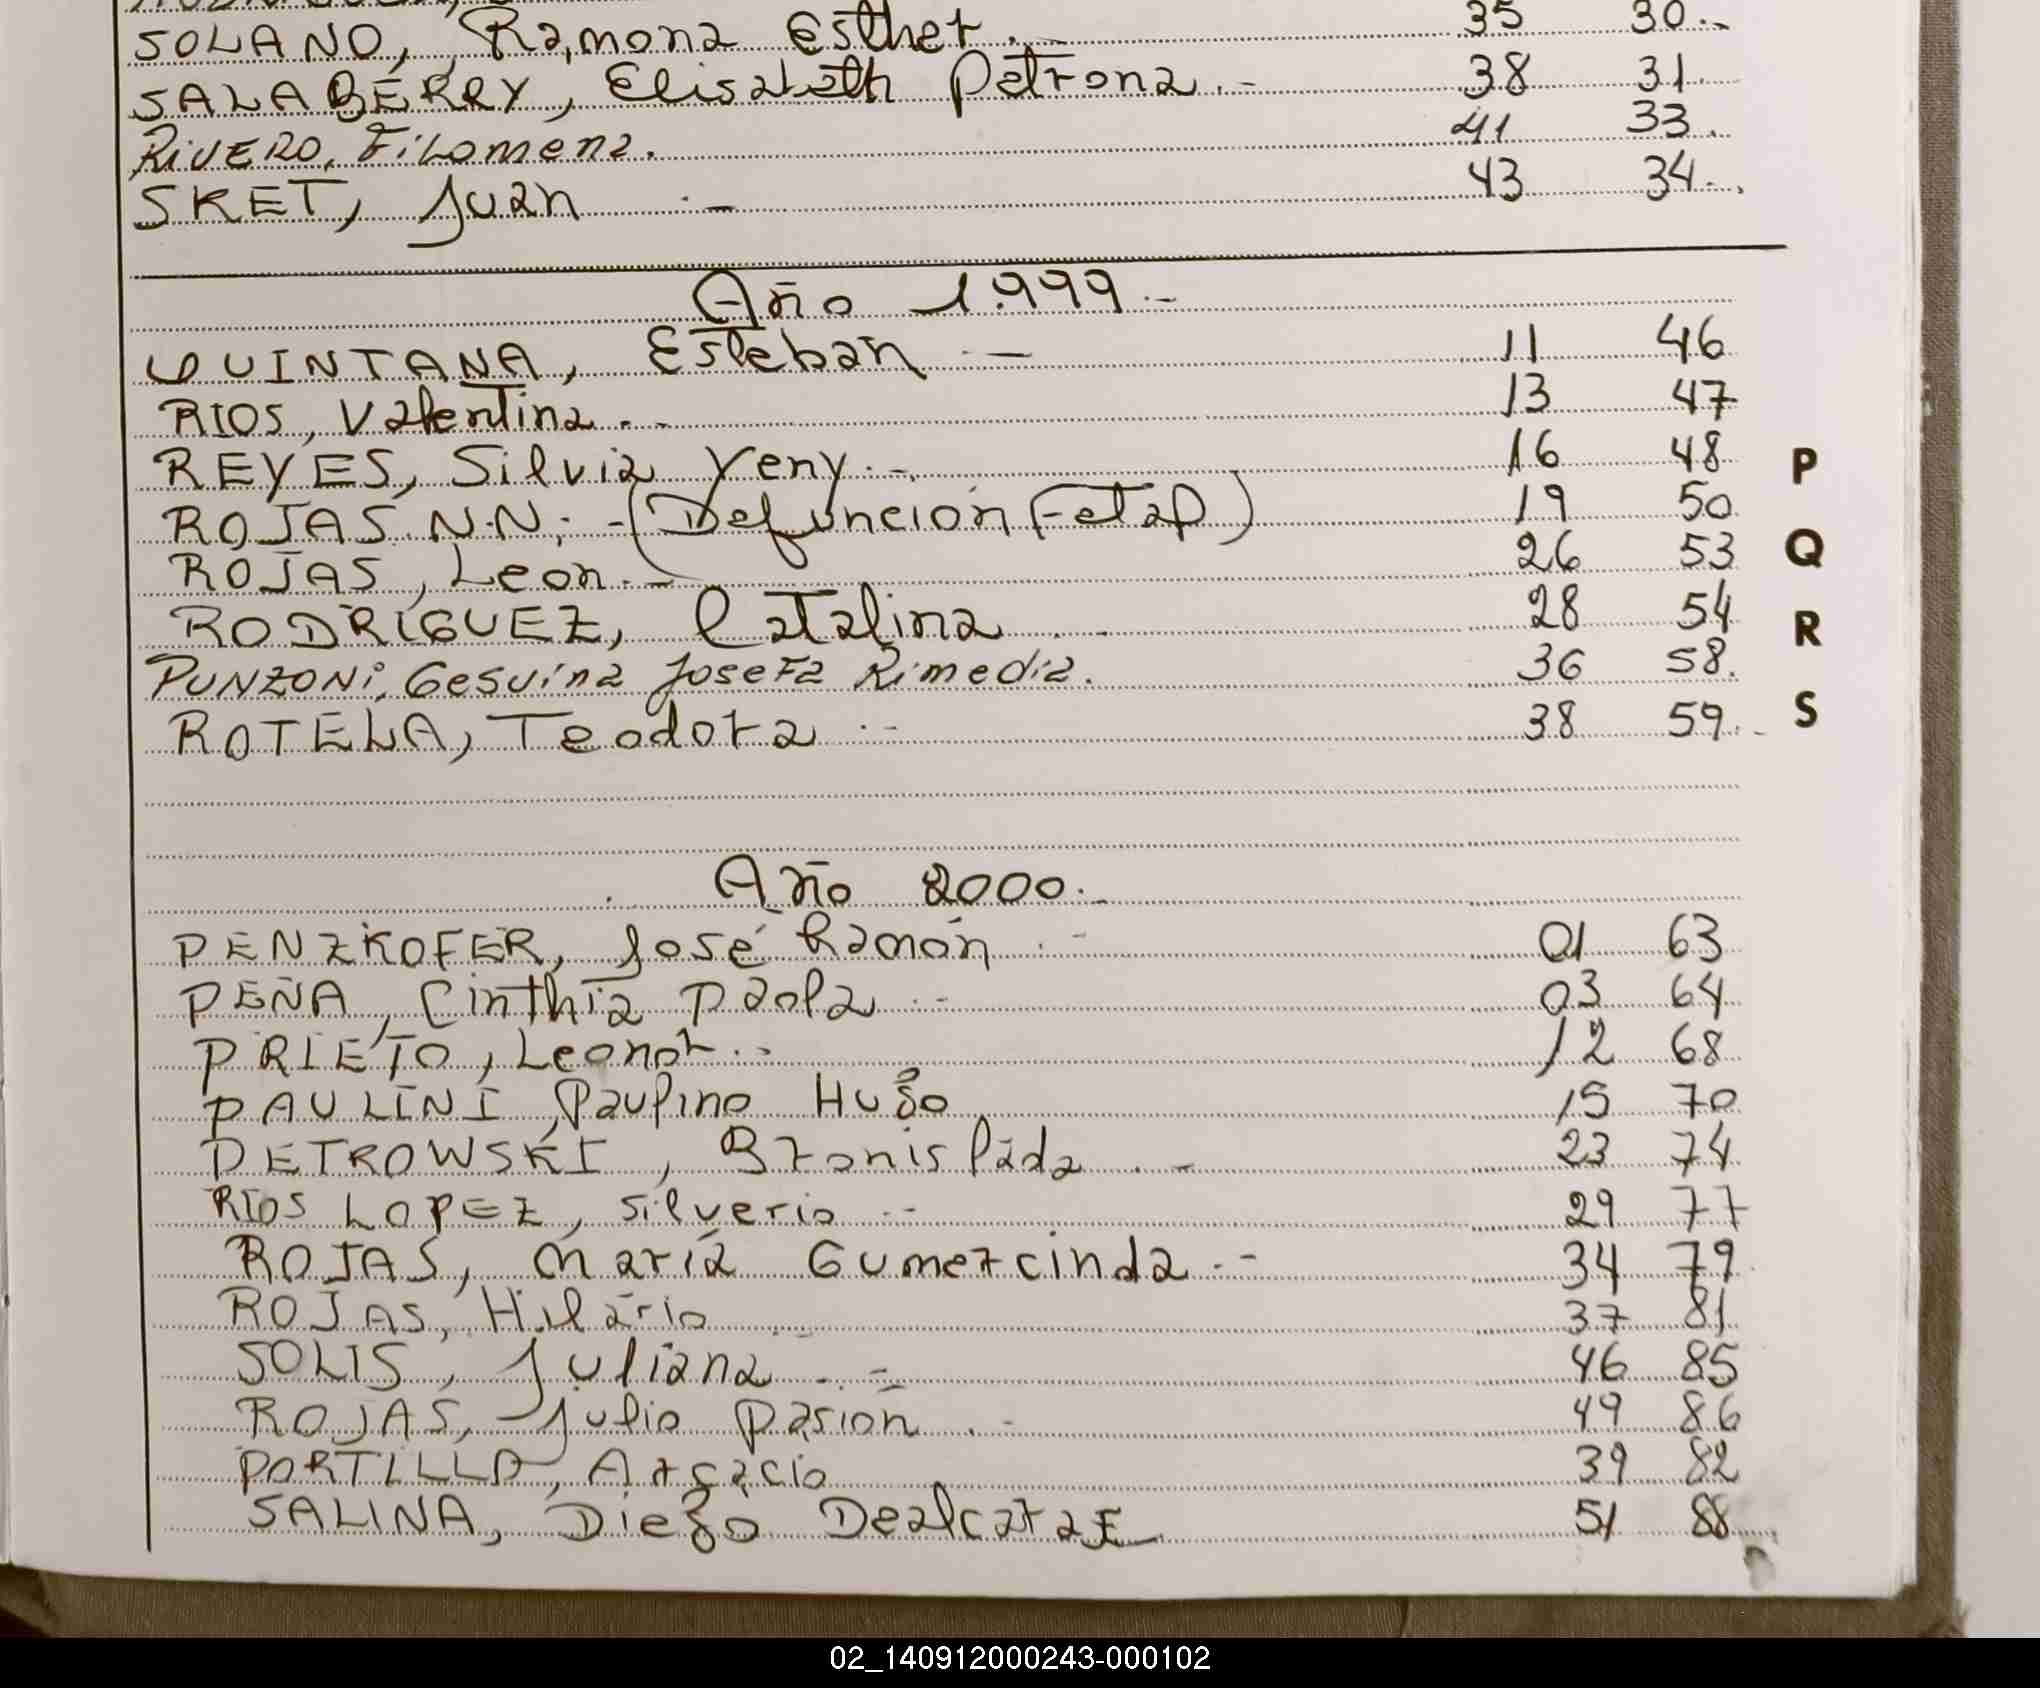 SOLANO, Ramona Esther.- 35 30.-
SALABERRY, Elisabeth Petrona.- 38 31.
RIVERO, Filomena. 41 33.
SKET, Juan .- 43 34.-.
Año 1.999.-
QUINTANA, Esteban .- 11 46
RIOS, Valentina.- 13 47
REYES, Silvia Yeny.- 16 48
ROJAS N.N; -(Defunción Fetal) 19 50
ROJAS, Leon.- 26 53
RODRIGUEZ, Catalina .- 28 54
PUNZONI, Gesuina Josefa Rimedia. 36 58.
ROTELA, Teodora .- 38 59.-
P
Q
R
S
Año 2000.-
PENZKOFER, José Ramón .- 01 63
PEÑA, Cinthia Paola .- 03 64
PRIETO, Leonor.- 12 68
PAULINI, Paulino Hugo. 15 70
PETROWSKI, Bronislada .- 23 74
RIOS LOPEZ, Silverio .- 29 77
ROJAS, María Gumercinda.- 34 79
ROJAS, Hilario .- 37 81
SOLIS, Juliana .- 46 85
ROJAS, Julio Pasión .- 49 86
PORTILLO, Arcacio 39 82
SALINA, Diego 51 88
02_140912000243-000102